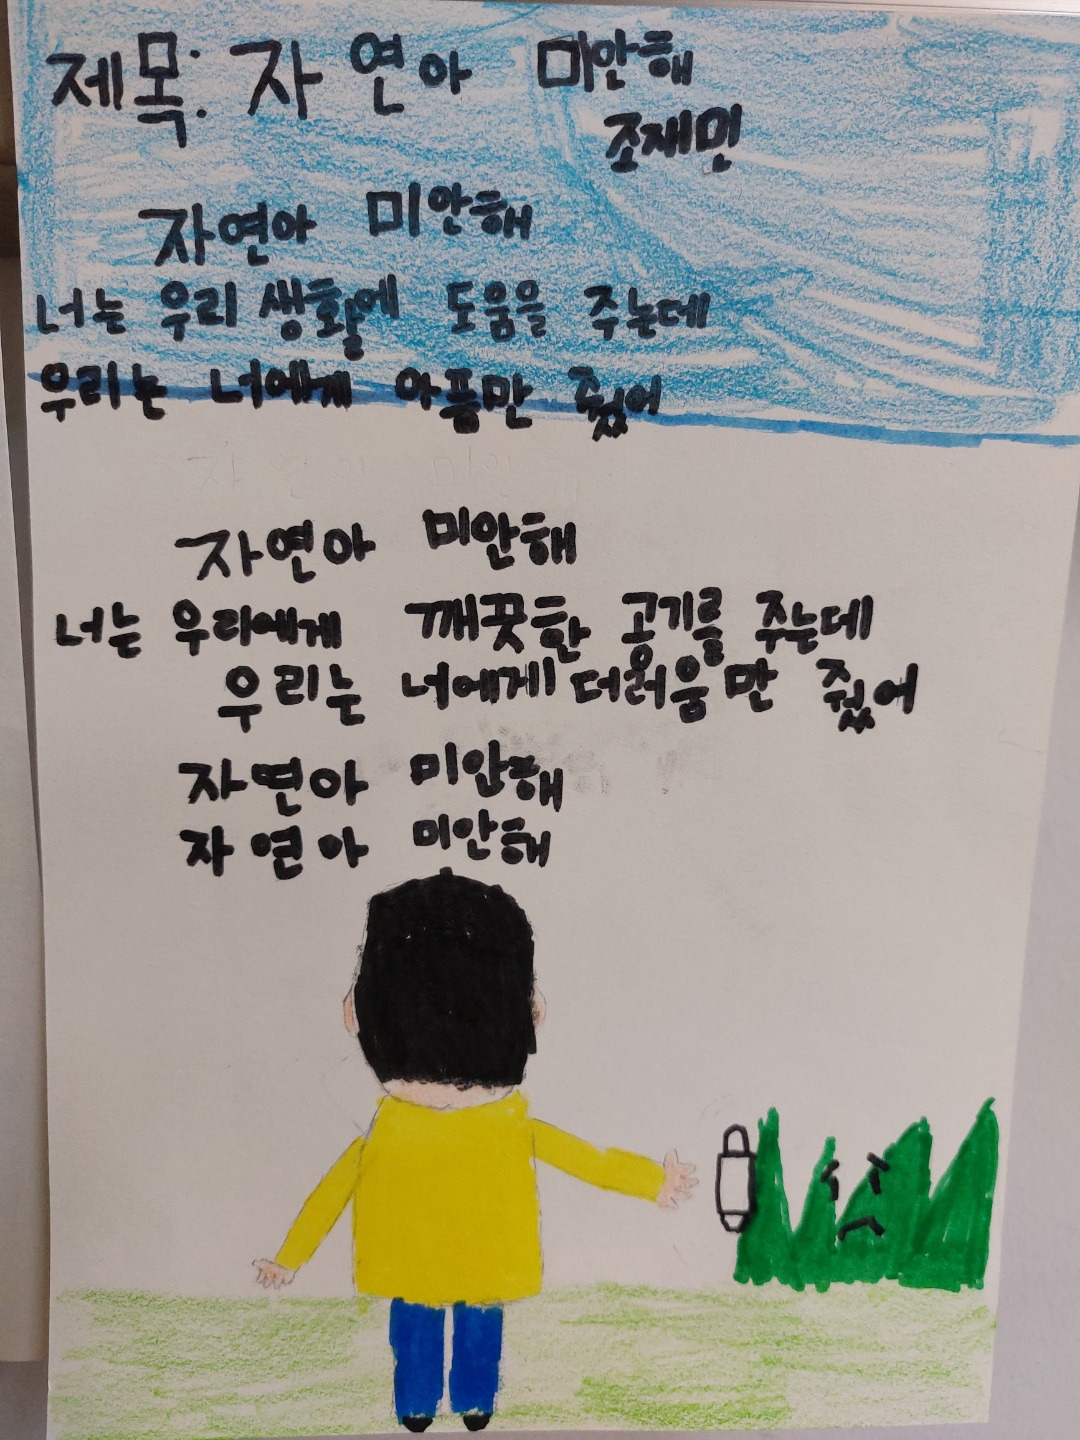 제목: 자연아 미안해
조재민
자연아 미안해
너는 우리 생활에 도움을 주는데
우리는 너에게 아픔만 줬어
자연아 미안해
너는 우리에게 깨끗한 공기를 주는데
우리는 너에게 더러움만 줬어
자연아 미안해
자연아 미안해